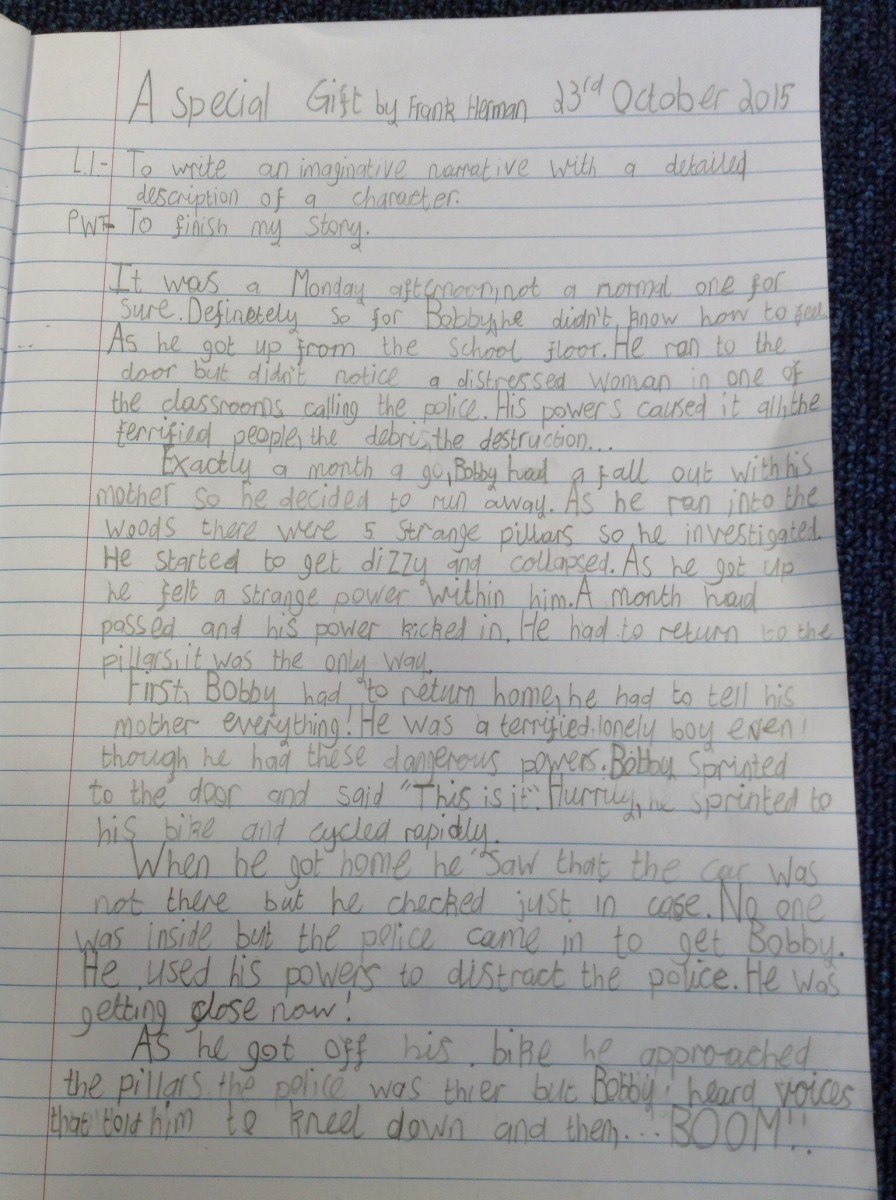 A special Gift by Frank Herman 23rd October 2015
L.I- To write an imaginative narrative with a detailed
description of a character.
PWT- To finish my story.
It was a Monday afternoon, not a normal one for
sure. Definetely so for Bobby, he didn't know how to feel.
As he got up from the school floor. He ran to the
door but didn't notice a distressed woman in one of
the classrooms calling the police. His powers caused it all, the
terrified people, the debris, the destruction...
Exactly a month a go, Bobby had a fall out with his
mother so he decided to run away. As he ran into the
woods there were 5 strange pillars so he investigated.
He started to get dizzy and collapsed. As he got up
he felt a strange power within him. A month had
passed and his power kicked in. He had to return to the
pillars, it was the only way.
First, Bobby had to return home, he had to tell his
mother everything! He was a terrified, lonely boy even
though he had these dangerous powers. Bobby sprinted
to the door and said "This is it". Hurrily, he sprinted to
his bike and cycled rapidly.
When he got home he saw that the car was
not there but he checked just in case. No one
was inside but the police came in to get Bobby.
He used his powers to distract the police. He was
getting close now!
As he got off his bike he approached
the pillars the police was thier but Bobby heard voices
that told him to kneel down and them... BOOM!!